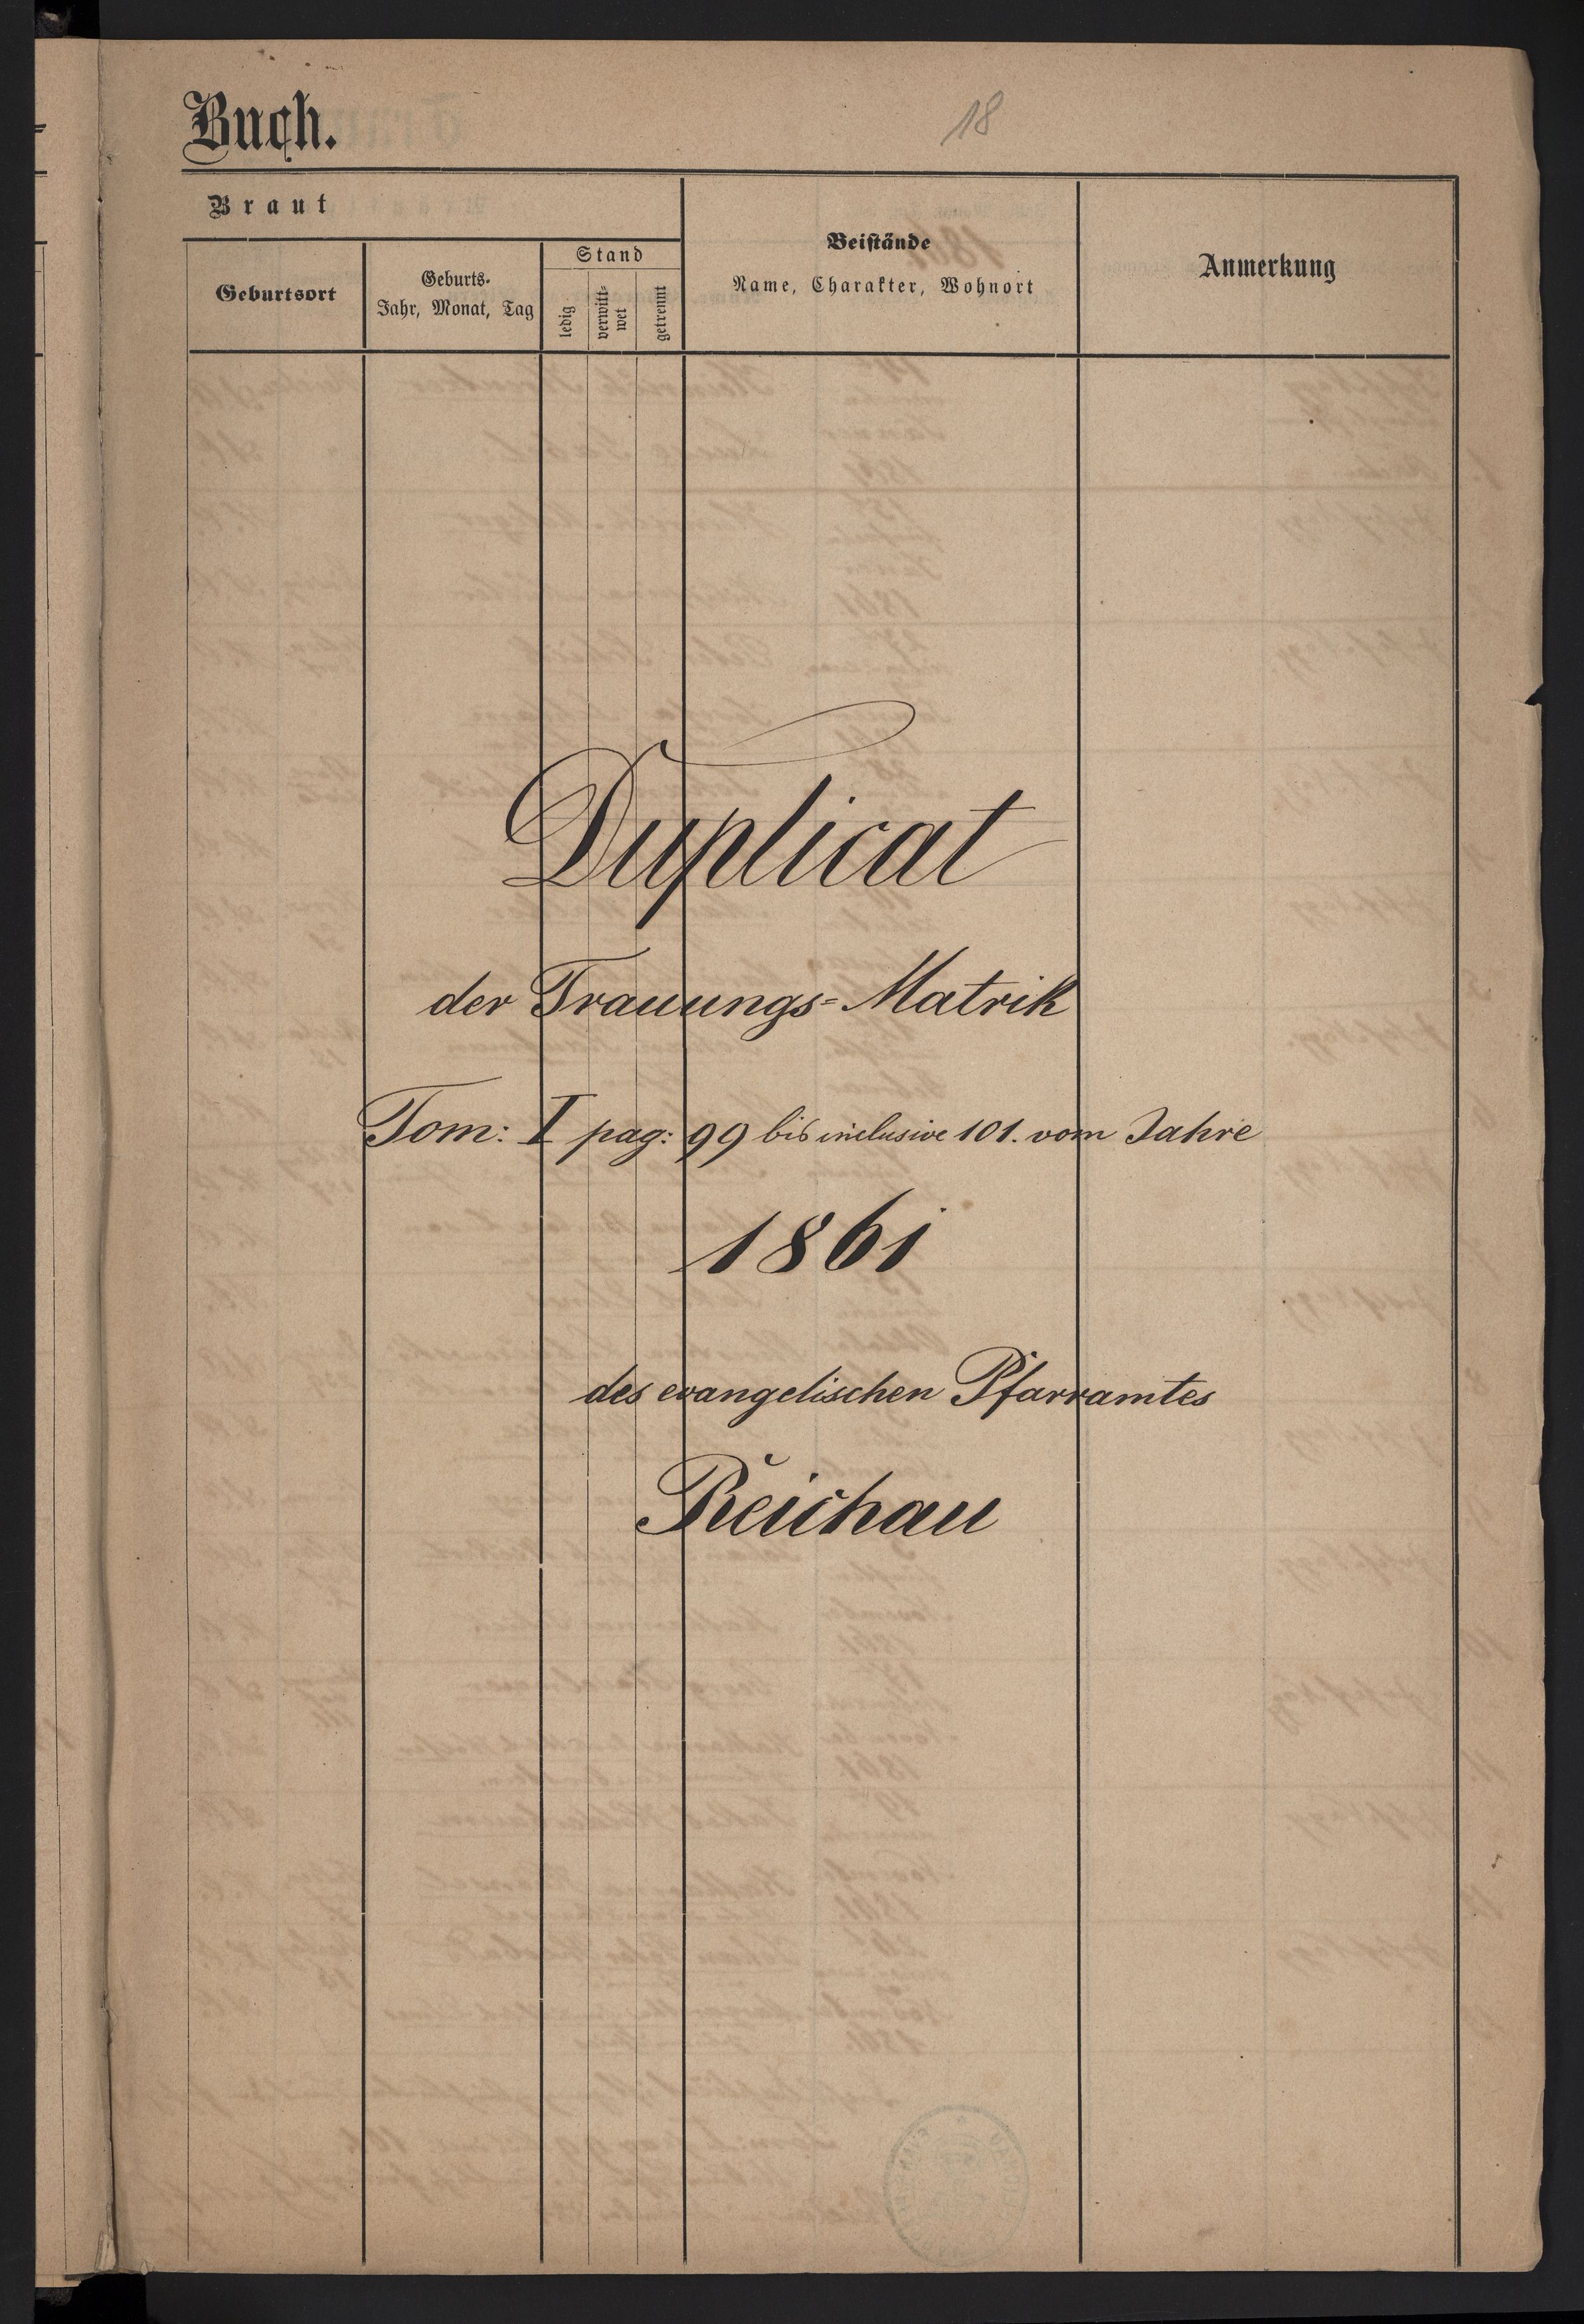 Buch.
18
Braut
Geburtsort
Geburts-
Jahr, Monat, Tag
Stand
ledig
verwitt-
wet
getrennt
Beistände
Name, Charakter, Wohnort
Anmerkung
Duplicat
der Trauungs-Matrik
Tom: I pag: 99 bis inclusive 101. vom Jahre
1861
des evangelischen Pfarramtes
Reichau